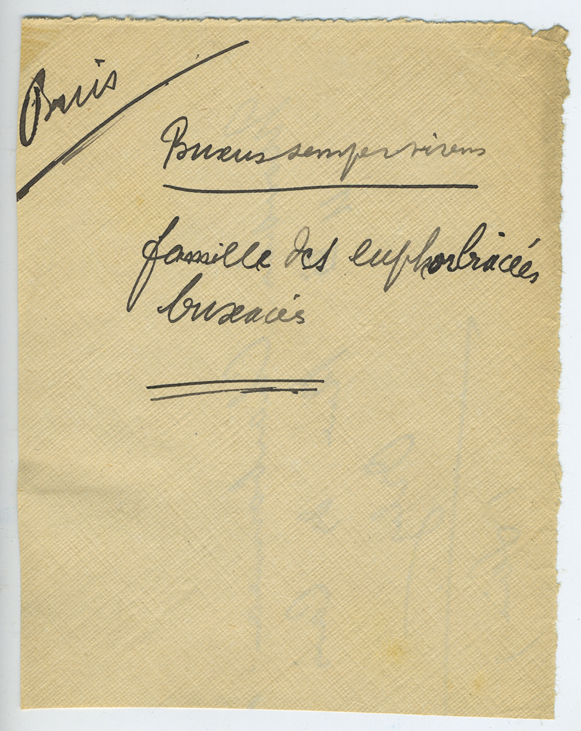 Buis
Buxus sempervirens
famille des euphorbiacées
buxacées